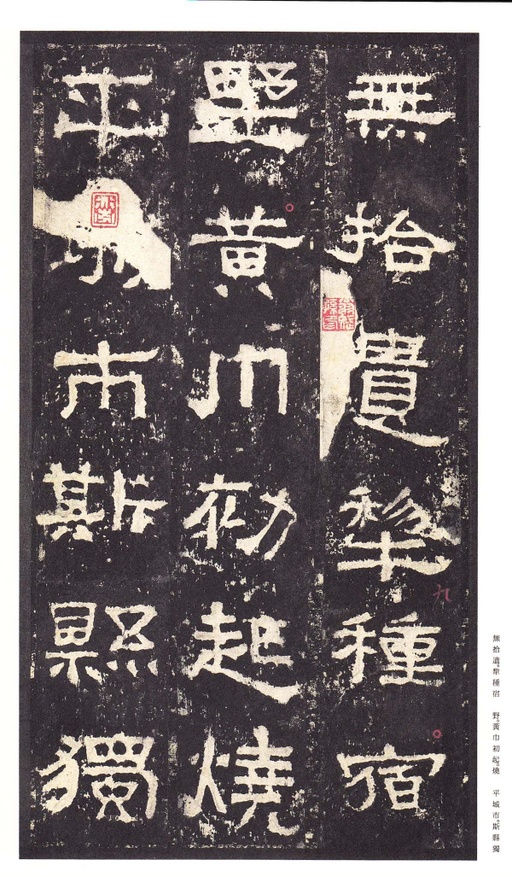 無拾遺犂種宿
野黄巾初起燒
平城市斯縣獨
九
無拾遺犂種宿　野黄巾初起燒　平城市斯縣獨